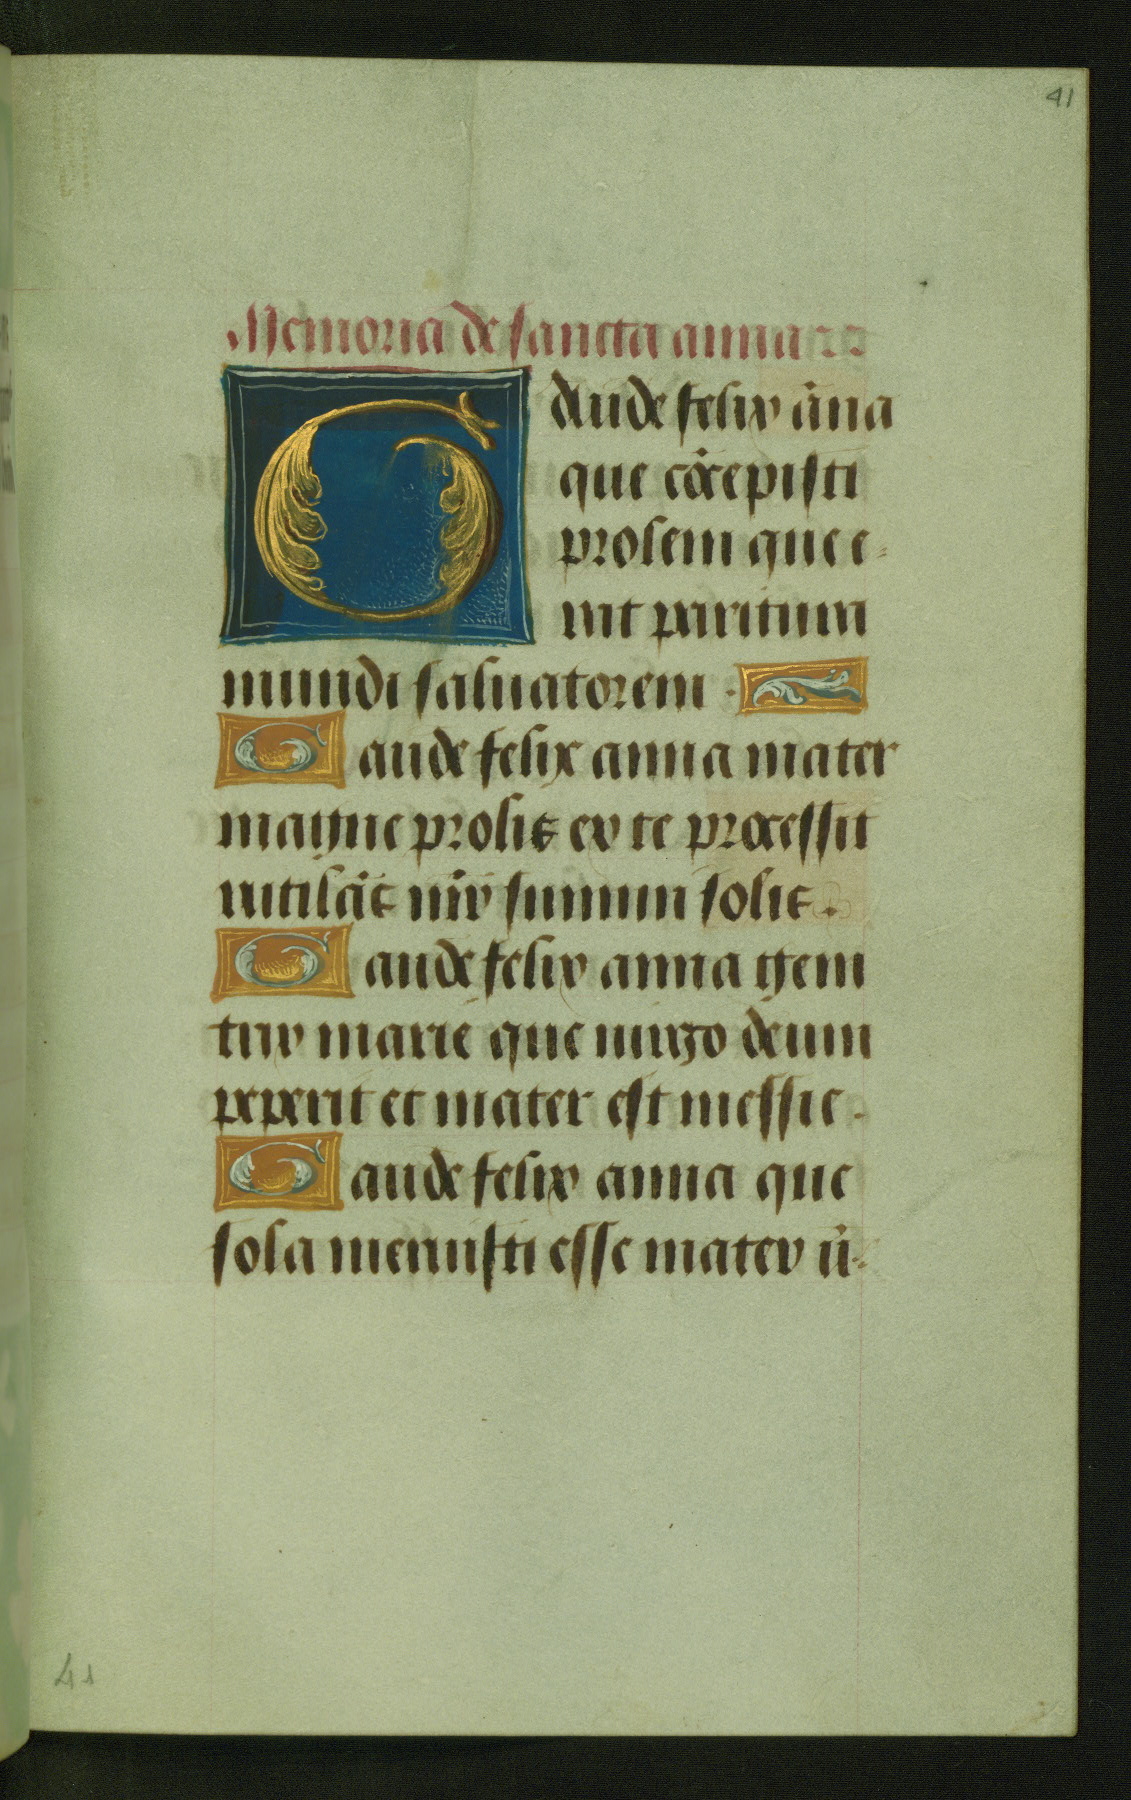 41
Memoria de sancta anna
Gaude felix āna
que cōcepisti
prolem que e
rat paritura
mundi saluatorem .
Gaude felix anna mater
magne prolis ex te processit
rutilās
solis .
Gaude felix anna geni
trix marie que uirgo deum
peperit et mater est messie .
Gaude felix anna que
sola meruisti esse mater
41